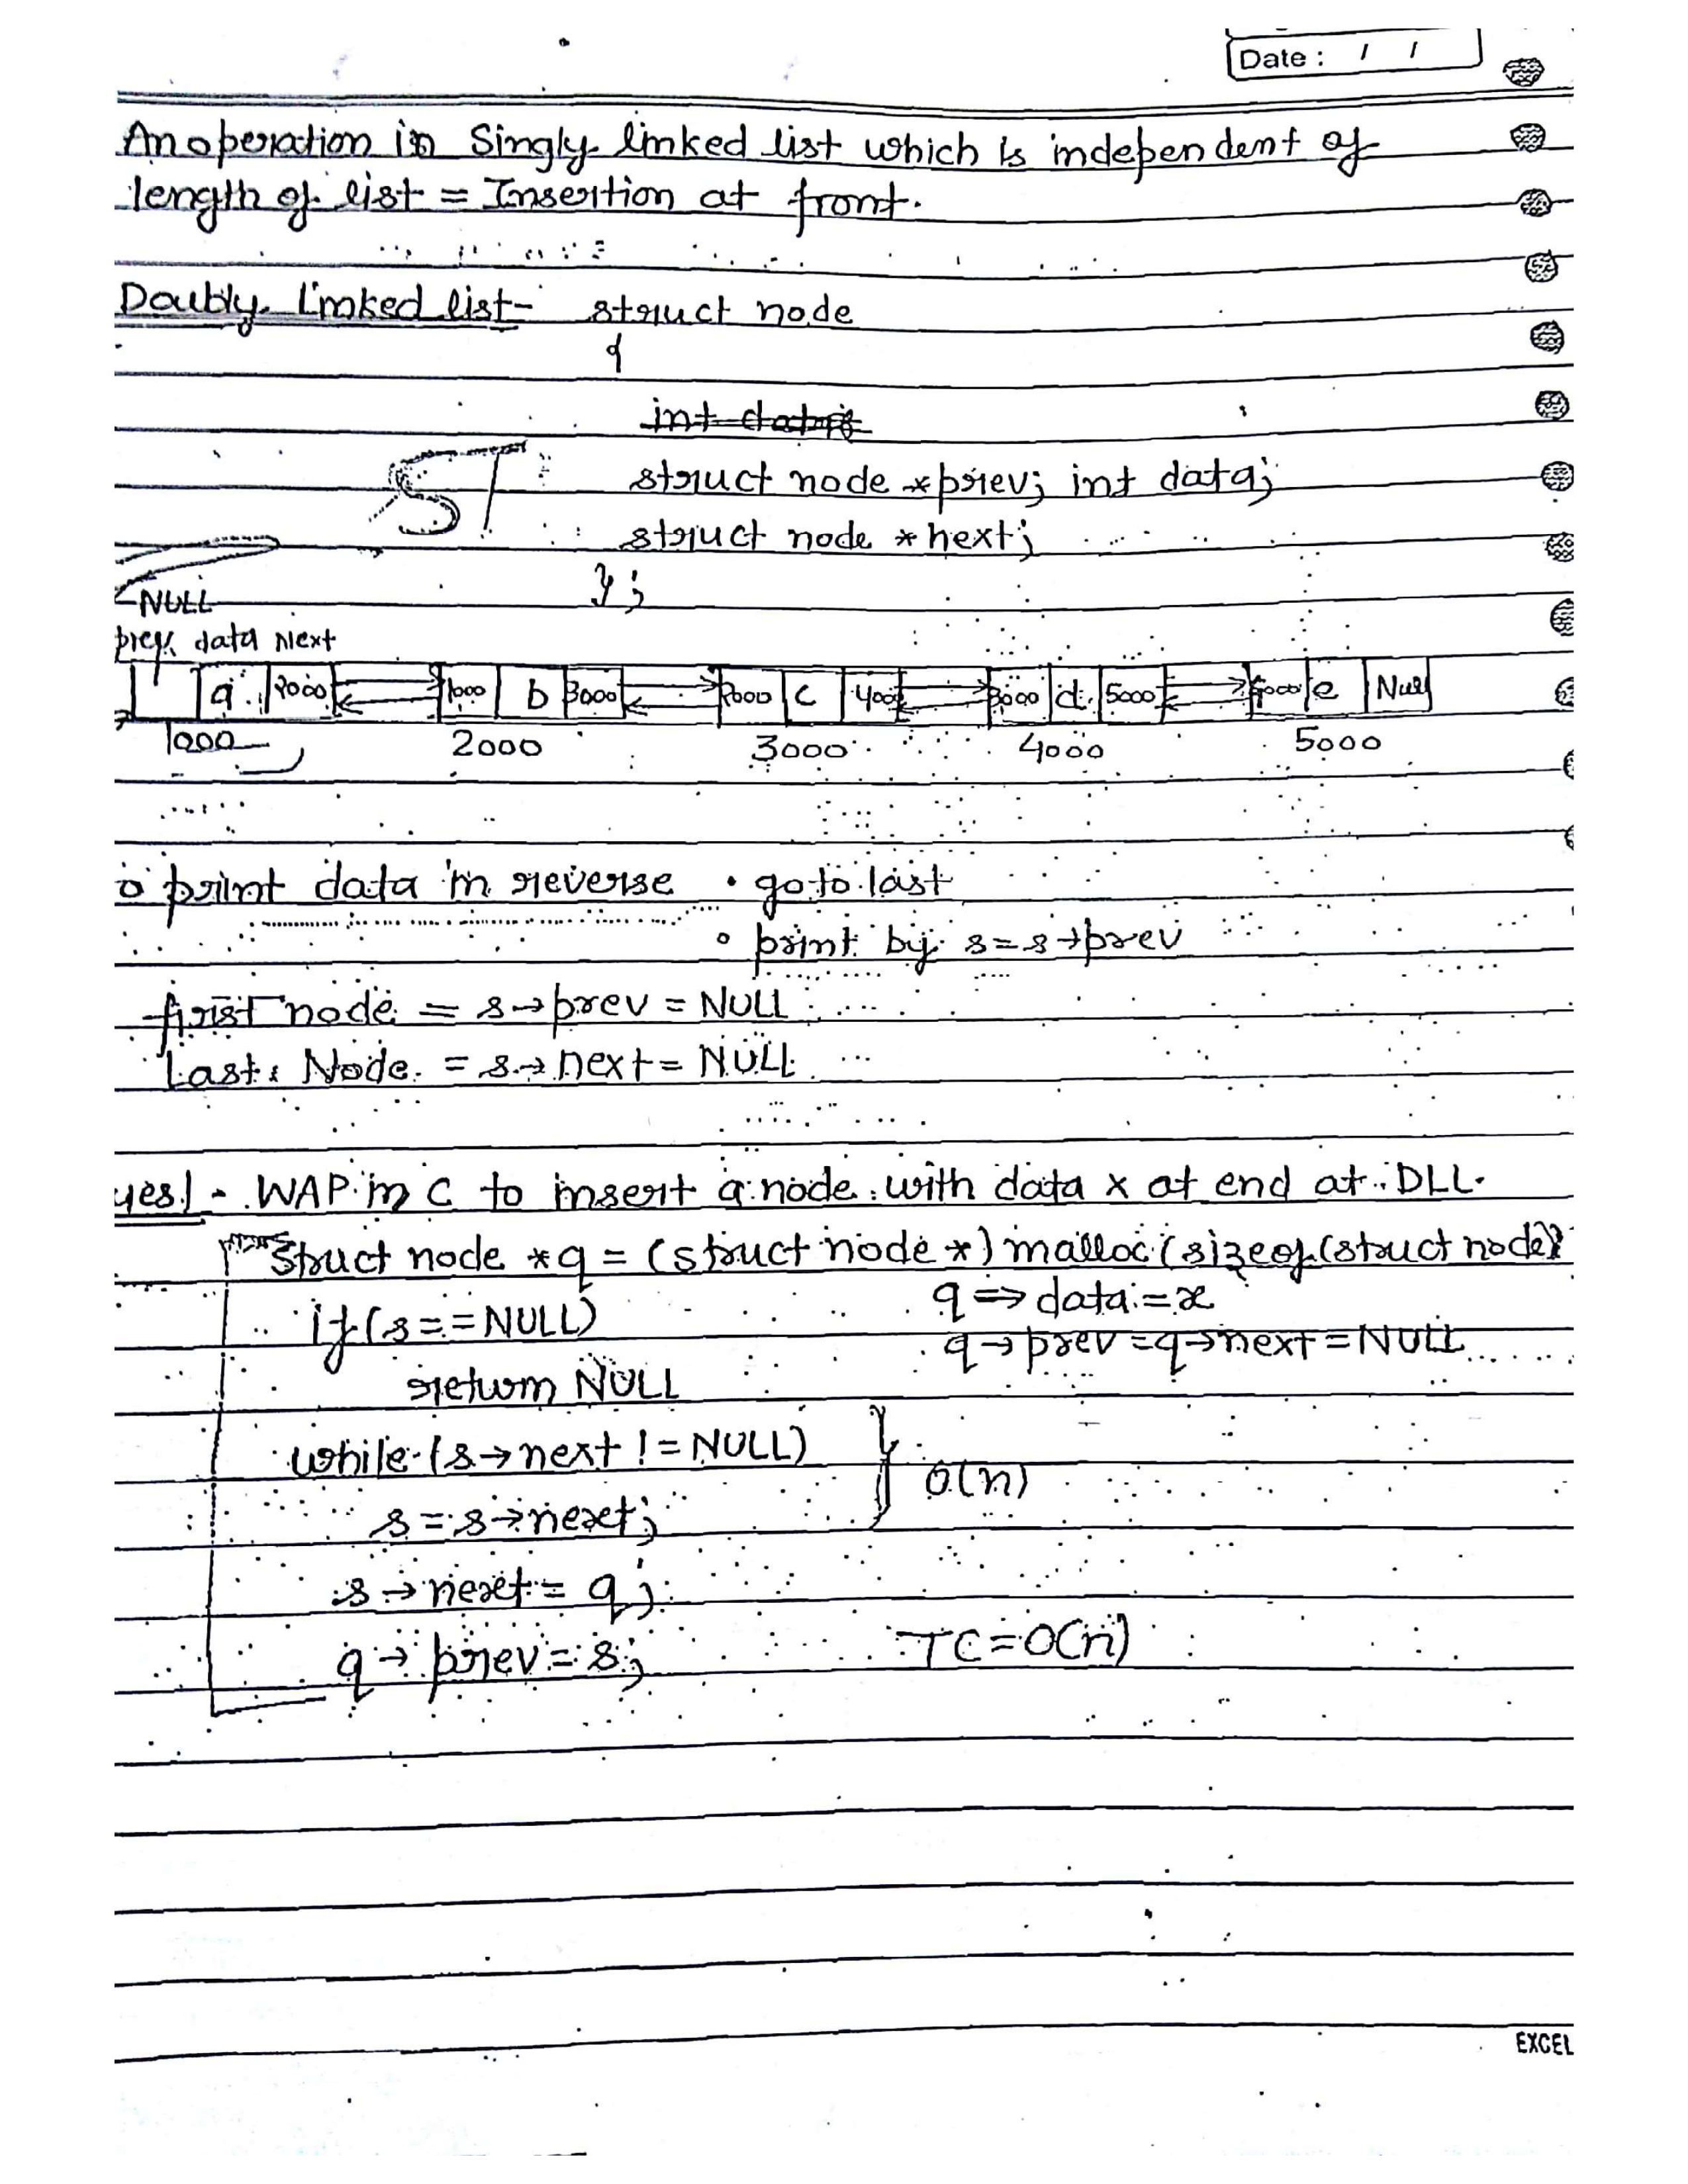 Date : / /
An operation in Singly linked list which is independent of
length of list = Insertion at front.
Doubly linked list - struct node
{
int data;
struct node *prev; int data;
struct node *next;
};
NULL
prev data Next
a 2000 1000 b 3000 2000 c 4000 3000 d 5000 4000 e Null
1000 2000 3000 4000 5000
o print data in reverse • go to last
• print by s=s→prev
first node = s→prev = NULL
Last Node = s→next = NULL
ues) - WAP in C to insert a node with data x at end at DLL.
Struct node *q = (struct node *) malloc (sizeof (struct node)
if (s==NULL) q⇒data = x
q→prev = q→next = NULL
return NULL
while (s→next != NULL)
O(n)
s = s→next;
s→next = q;
q→prev = s; TC = O(n)
EXCEL